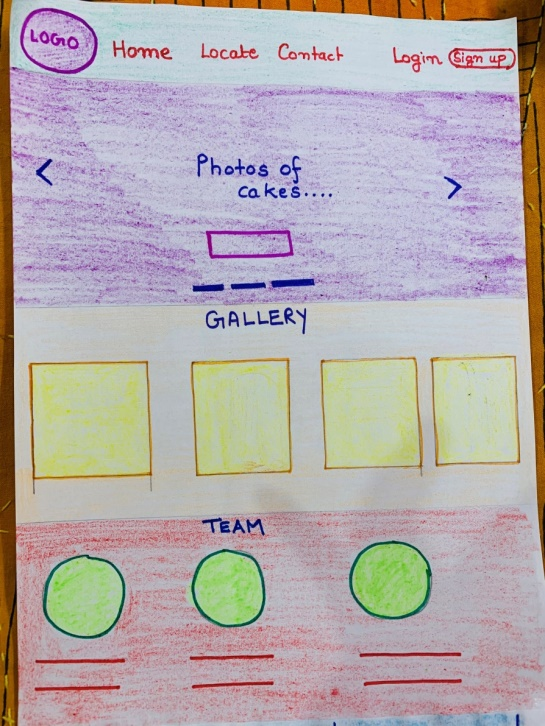 LOGO Home Locate Contact Login Sign up
< >
Photos of
cakes....
GALLERY
TEAM